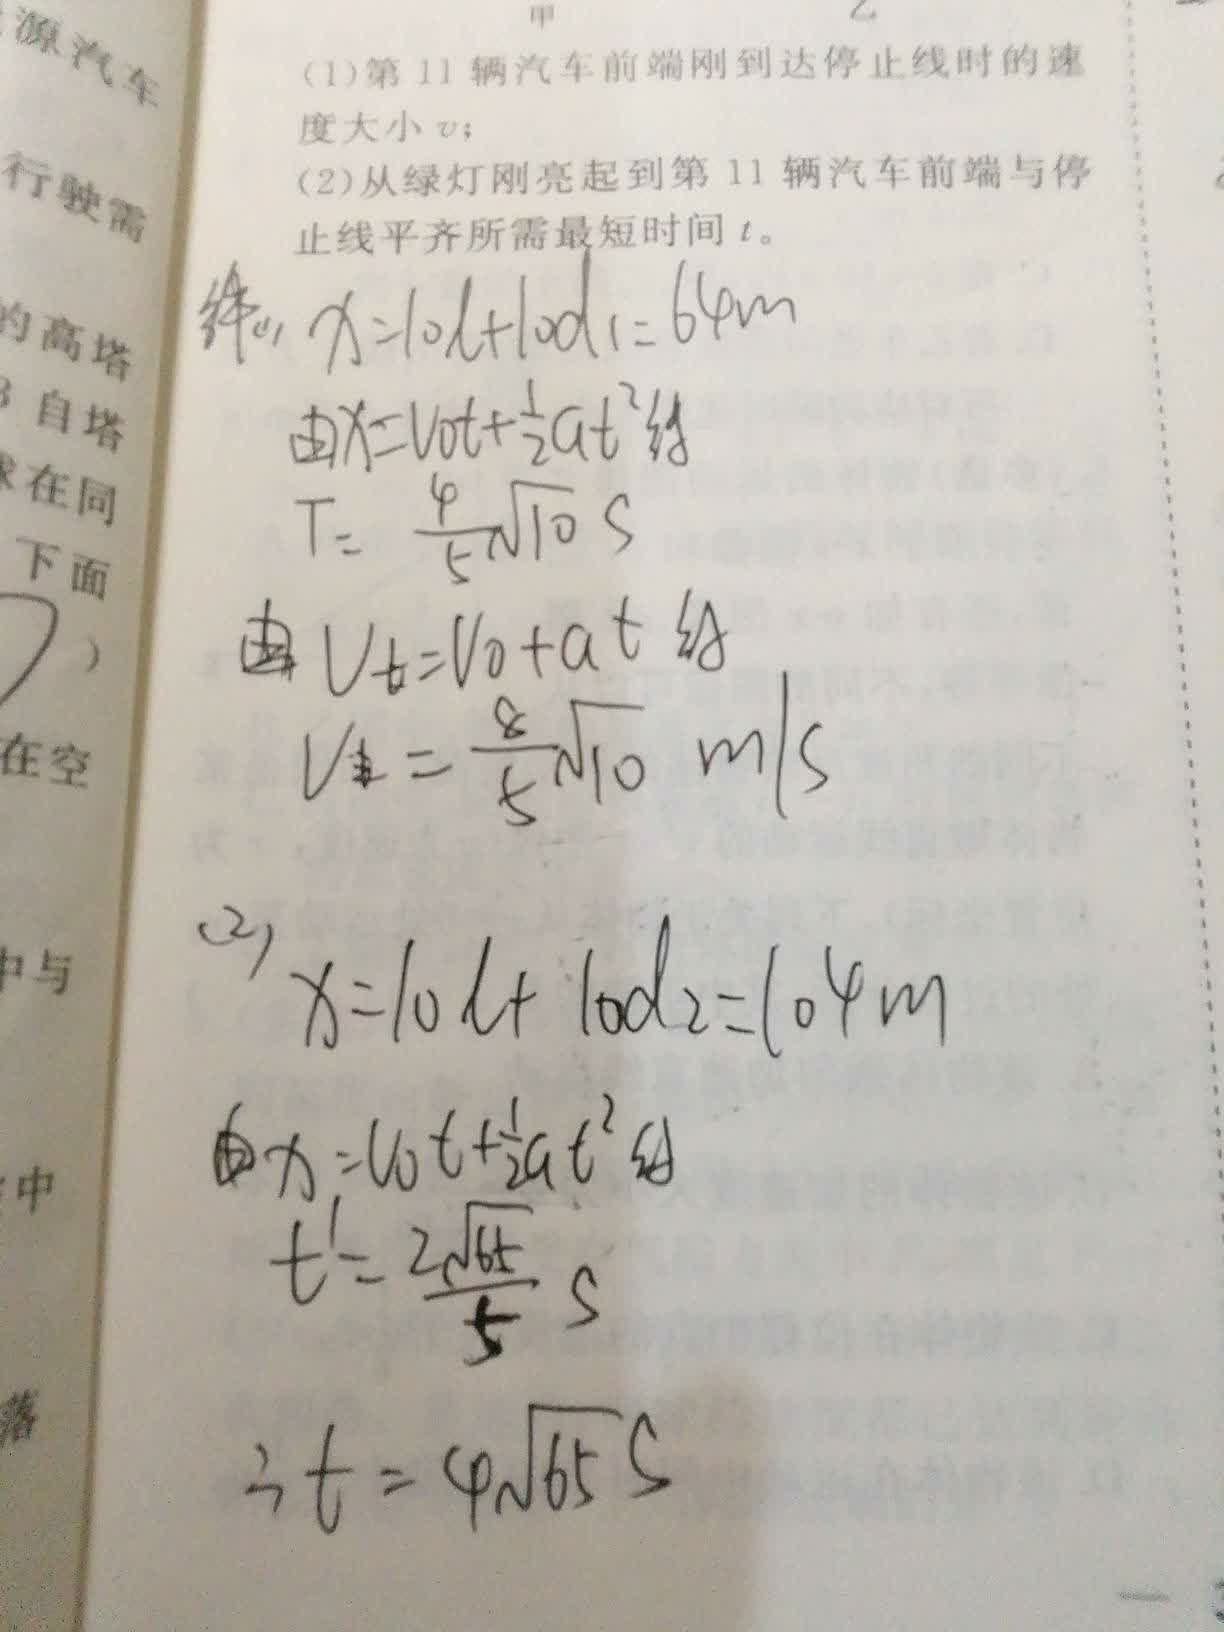 源汽车
行驶需
的高塔
3自塔
球在同
下面
)
在空
中与
中
落
甲 乙
(1)第11辆汽车前端刚到达停止线时的速
度大小v;
(2)从绿灯刚亮起到第11辆汽车前端与停
止线平齐所需最短时间t。
解(1) x=10l+10d1=64m
由x=V0t+½at²得
T=4/5√10 s
由 Vt=V0+at 得
Vt=8/5√10 m/s
(2)
x=10l+10d2=104m
由x=V0t+½at²得
t'=2√65/5 s
∴t=4√65 s